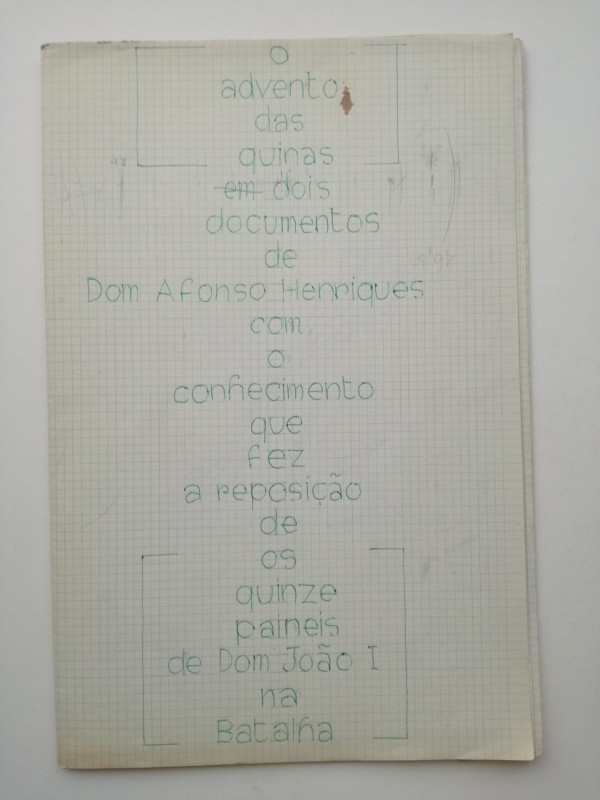 o
advento
das
quinas
em dois
documentos
de
Dom Afonso Henriques
com
o
conhecimento
que
fez
a reposição
de
os
quinze
paineis
de Dom João I
na
Batalha